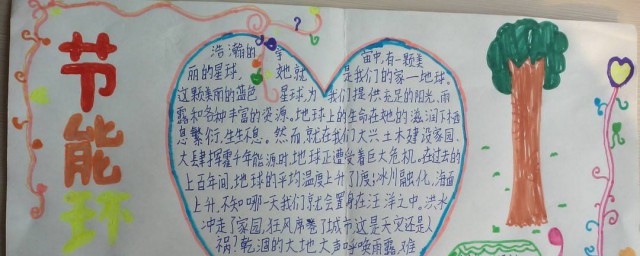 节能环
?
浩瀚的宇宙中,有一颗美
丽的星球,她就是我们的家—地球。
这颗美丽的蓝色星球,为我们提供充足的阳光、雨
露和各种丰富的资源。地球上的生命在她的滋润下栖
息繁衍,生生不息。然而,就在我们大兴土木建设家园、
大肆挥霍千年能源时,地球正遭受着巨大危机。在过去的
上百年间,地球的平均温度上升了1度,冰川融化,海面
上升,不知哪一天我们就会置身在汪洋之中,洪水
冲走了家园,狂风席卷了城市这是天灾还是人
祸?乾涸的大地大声呼唤雨露,难